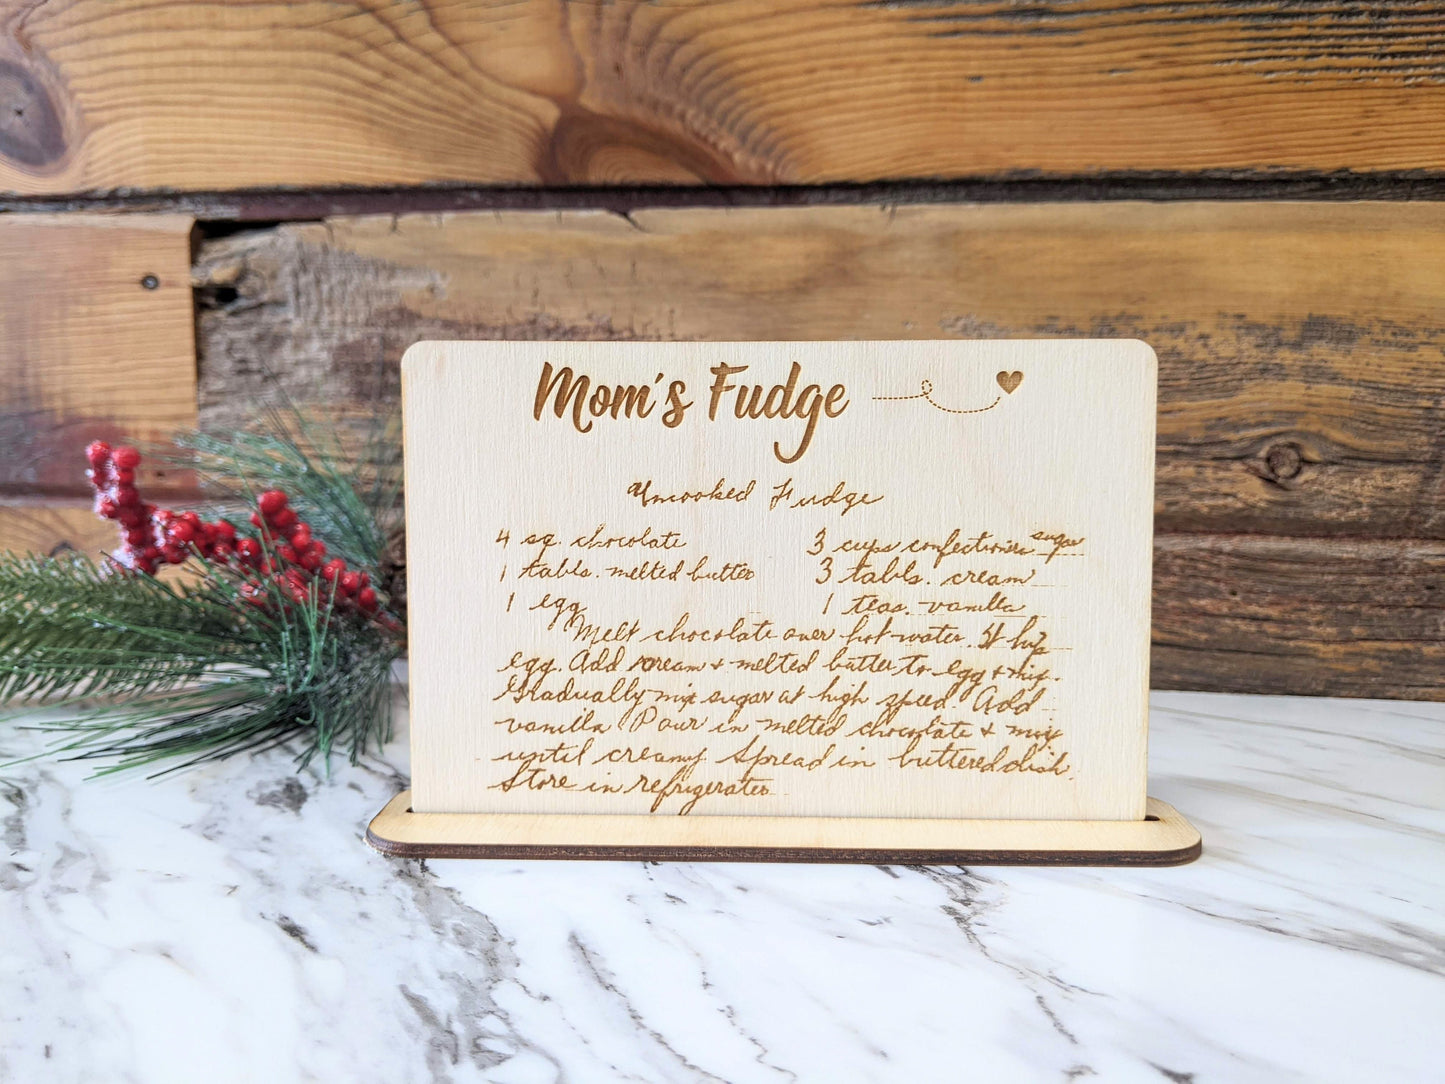 Mom's Fudge
Uncooked Fudge
4 sq. chocolate 3 cups confectioners sugar
1 tabls. melted butter 3 tabls. cream
1 egg 1 teas. vanilla
Melt chocolate over hot water.
egg. Add cream + melted butter to egg + mix.
Gradually mix sugar at high speed Add
vanilla Pour in melted chocolate + mix
until creamy Spread in buttered dish.
Store in refrigerator